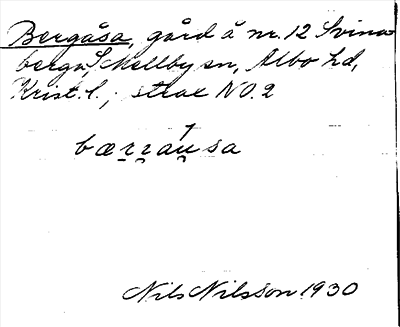 Bergåsa, gård å nr. 12 Svina-
berga, S. Mellby sn, Albo hd,
Krist. l.; strae NO. 2
bærraṵsa
Nils Nilsson 1930